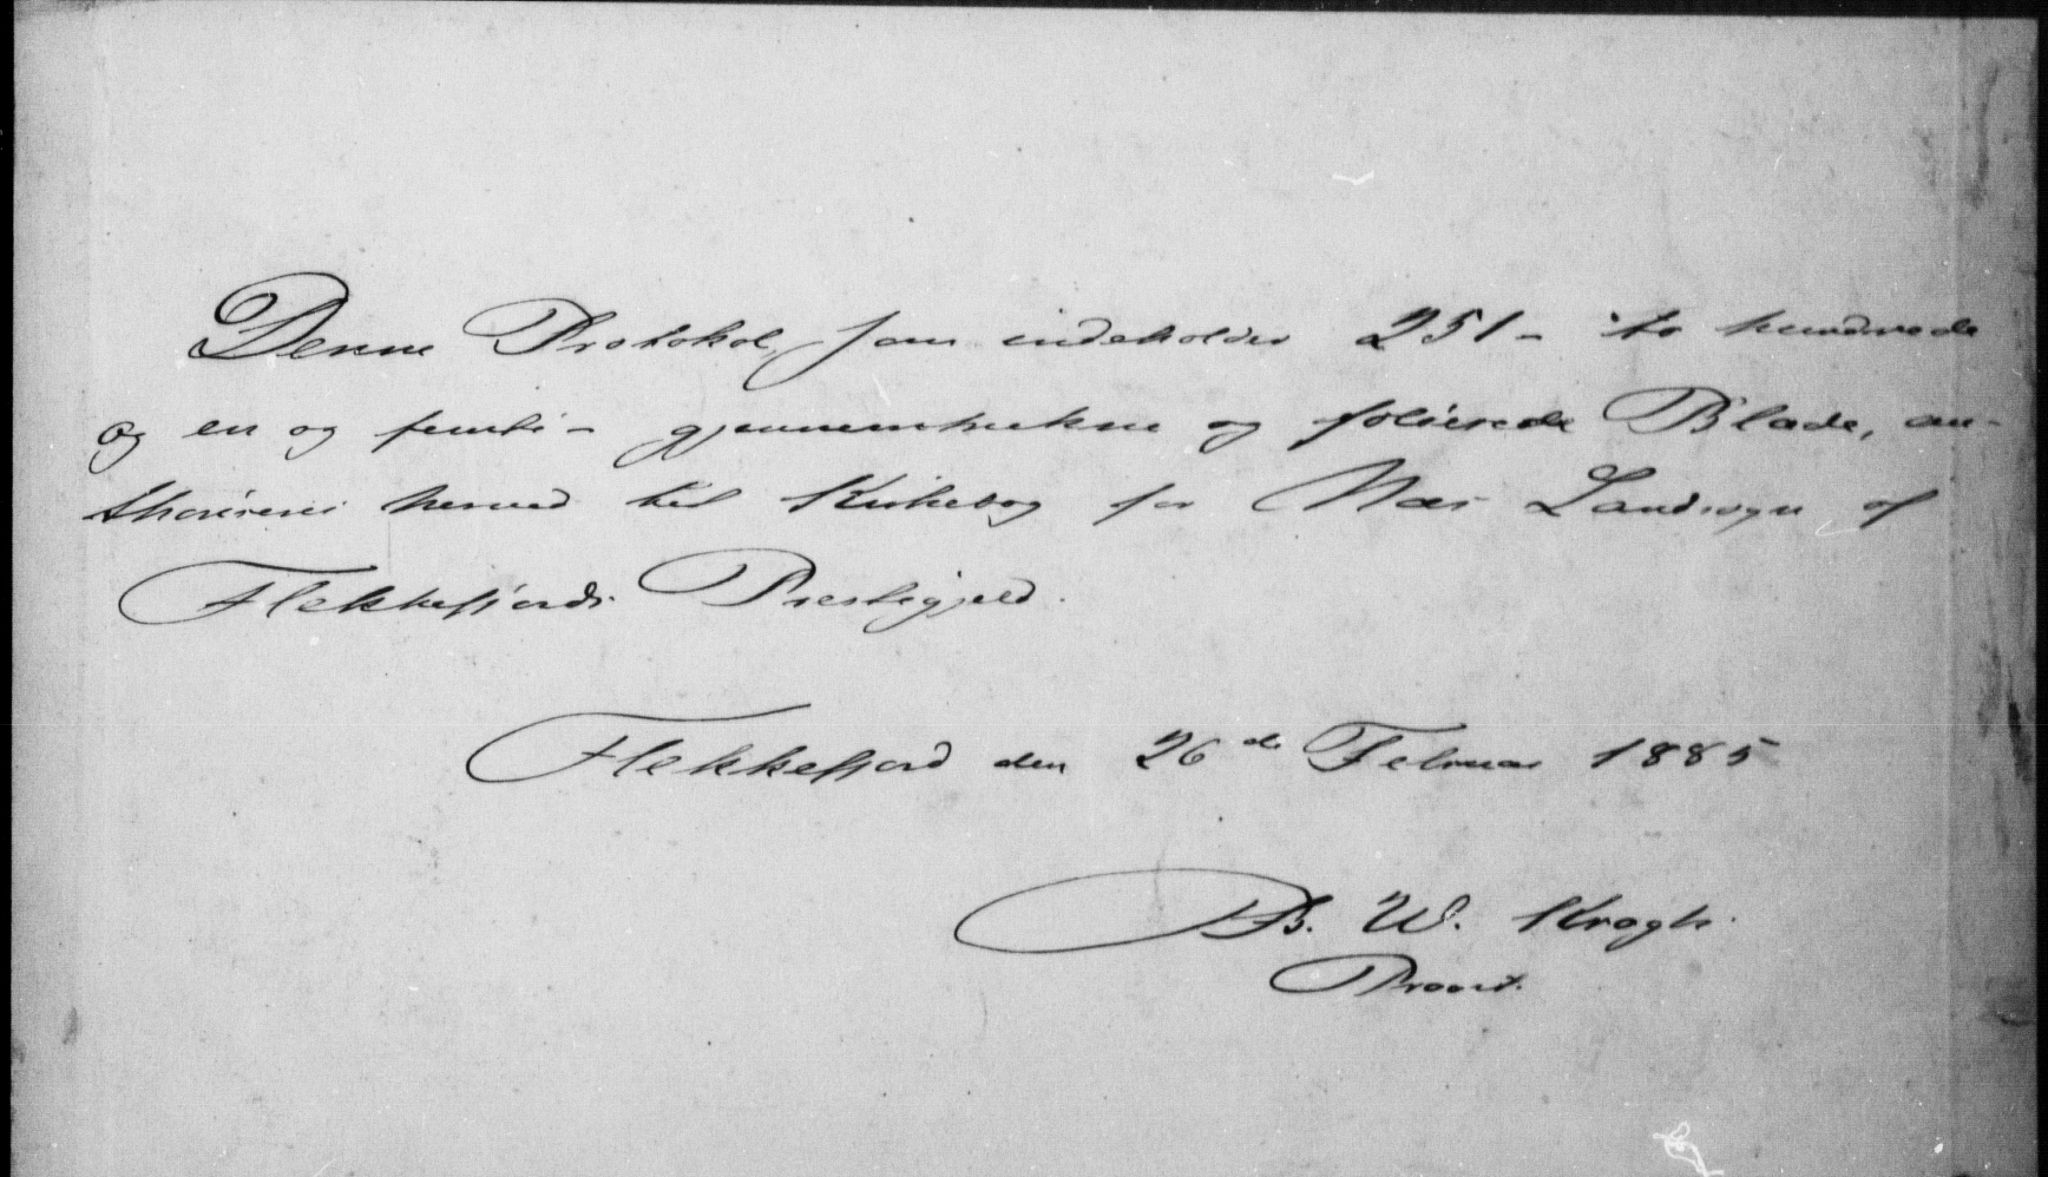 Denne Protokol, som indeholder 251 - to hundrede
og en og femti - gjennemtrukne og folierede Blade, au-
thoriseres herved til Kirkebog for Næs Landsogn af
Flekkefjords Prestegjeld.
Flekkefjord den 26de Februar 1885
B. W. Krogh.
Provst.